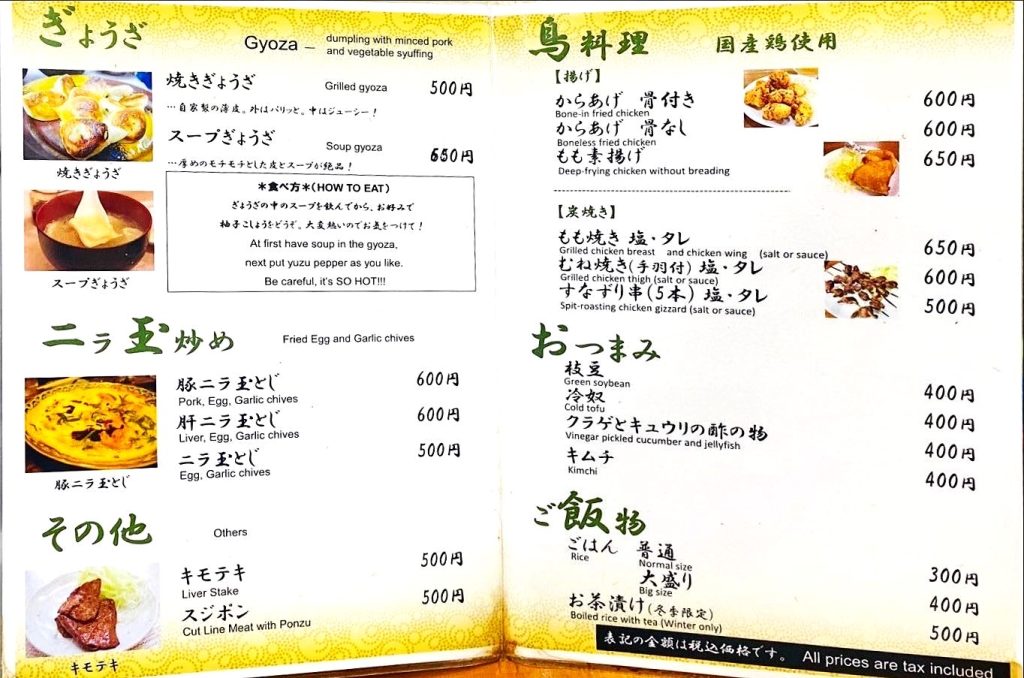 ぎょうざ
Gyoza – dumpling with minced pork
and vegetable syuffing
焼きぎょうざ 500円
Grilled gyoza
…自家製の薄皮。外はパリッと。中はジューシー!
スープぎょうざ 650円
Soup gyoza
…厚めのモチモチとした皮とスープが絶品!
焼きぎょうざ
スープぎょうざ
*食べ方*(HOW TO EAT)
ぎょうざの中のスープを飲んでから、お好みで
柚子こしょうをどうぞ。大変熱いのでお気をつけて!
At first have soup in the gyoza,
next put yuzu pepper as you like.
Be careful, it's SO HOT!!!
ニラ玉炒め Fried Egg and Garlic chives
豚ニラ玉とじ 600円
Pork, Egg, Garlic chives
肝ニラ玉とじ 600円
Liver, Egg, Garlic chives
ニラ玉とじ 500円
Egg, Garlic chives
豚ニラ玉とじ
その他 Others
キモテキ 500円
Liver Stake
スジポン 500円
Cut Line Meat with Ponzu
キモテキ
鳥料理 国産鶏使用
【揚げ】
からあげ 骨付き 600円
Bone-in fried chicken
からあげ 骨なし 600円
Boneless fried chicken
もも素揚げ 650円
Deep-frying chicken without breading
【炭焼き】
もも焼き 塩・タレ 650円
Grilled chicken breast and chicken wing (salt or sauce)
むね焼き(手羽付) 塩・タレ 600円
Grilled chicken thigh (salt or sauce)
すなずり串(5本) 塩・タレ 500円
Spit-roasting chicken gizzard (salt or sauce)
おつまみ
枝豆 400円
Green soybean
冷奴 400円
Cold tofu
クラゲとキュウリの酢の物 400円
Vinegar pickled cucumber and jellyfish
キムチ 400円
Kimchi
ご飯物
ごはん 普通 300円
Rice Normal size
大盛り 400円
Big size
お茶漬け(冬季限定) 500円
Boiled rice with tea (Winter only)
表記の金額は税込価格です。 All prices are tax included